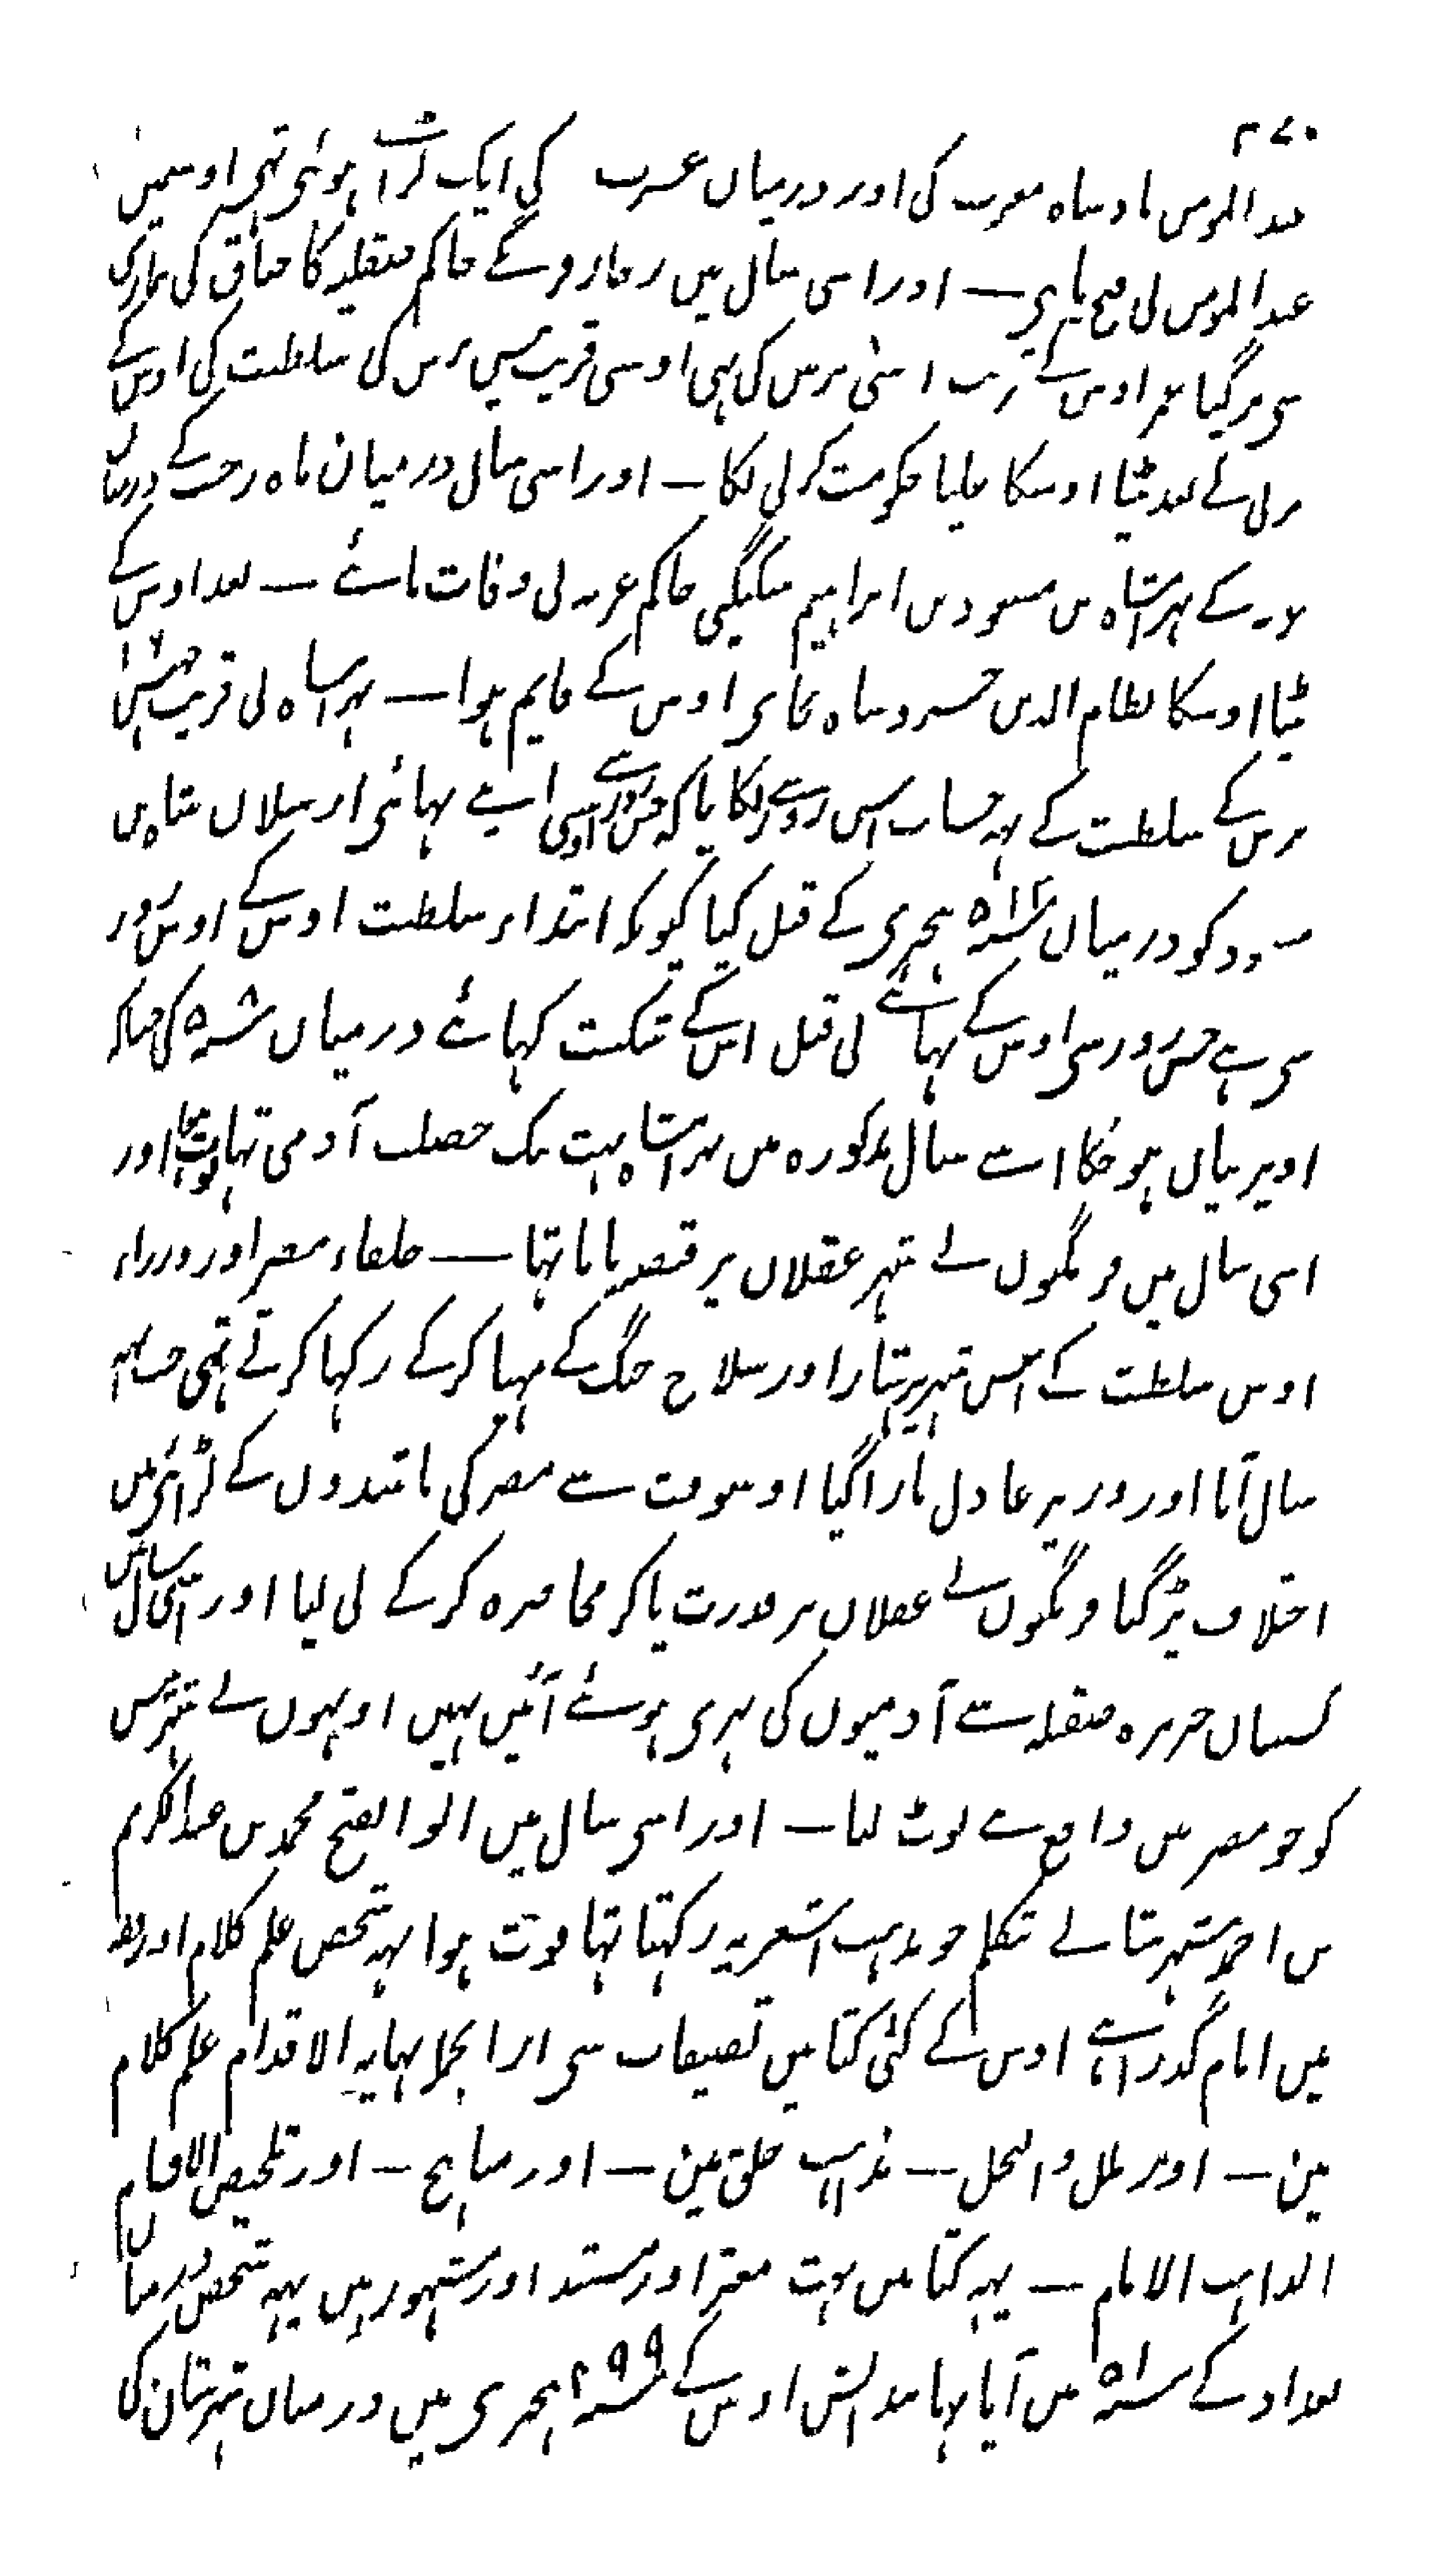 ۲۷۰
عبدالمومن بادشاہ مغرب کی اور درمیان عرب کی ایک لڑائی ہوئی تہی اوسمیں
عبدالمومن نی فتح پایی — اور اسی سال میں رجار فرنگے حاکم صقلیہ کا خناق کی بیماری
سی مرگیا عمر اوس کے قریب اسّی برس کی تہی اوسی قریب بیس برس کی سلطنت کی اوس کے
مرنی کے بعد بیٹا اوسکا غلیا حکومت کرنی لگا — اور اسی سال درمیان ماہ رجب کے درمیان
کے بہرامشاہ بن مسعود بن ابراہیم سبکتگین حاکم غزنہ نی وفات پائے — بعد اوس کے
بیٹا اوسکا نظام الدین خسرو شاہ بجای اوس کے قایم ہوا — بہرامشاہ نی قریب چھتیس
برس کے سلطنت کے یہہ حساب اس روز سے لگایا کہ جس روز سے اوسی اپنے بہائی ارسلان شاہ بن
مسعود کو درمیان سنہ ۵۱۲ ہجری کے قتل کیا کیونکہ ابتداء سلطنت اوس کے اوس روز
سی ہے جس روز سی اوس کے بہائے نی قبل اس کے شکست کہائے درمیان سنہ ۵۰۸ کی چنانکہ
اوپر بیان ہو چکا اسے سال مذکورہ میں بہرامشاہ بہت نیک خصلت آدمی تہا فوت ہوا اور
اسی سال میں فرنگیوں نے شہر عسقلان پر قبضہ پایا تہا — خلفاء مصر اور وزراء
اوس سلطنت کے اس شہر پر ہتیار اور سلاح جنگ کے مہیا کر کے رکہا کرتے تہی جب یہہ
سال آیا اور وزیر عادل مارا گیا اوسوقت سے مصر کی باشندوں کے لڑائی میں
اختلاف پڑ گیا فرنگیوں نے عسقلان پر قدرت پاکر محاصرہ کر کے لی لیا اور اسی سال میں
کشتیاں جزیرہ صقلیہ سے آدمیوں کی بہری ہوئے آئیں تہیں اونہوں نے شہر تنیس
کو جو مصر میں واقع ہے لوٹ لیا — اور اسی سال میں ابو الفتح محمد بن عبدالکریم
بن احمد شہرستانے متکلم جو مذہب اشعریہ رکہتا تہا فوت ہوا یہہ شخص علم کلام اور فقہ
میں امام گذرا ہے اوس کے کئی کتابیں تصنیفات سی ازانجملہ نہایہ الاقدام علم کلام
میں — اور ملل و النحل — مذاہب خلق میں — اور مناہج — اور تلخیص الاقسام
المذاہب الانام — یہہ کتابیں بہت معتبر اور مستند اور مشہور ہیں یہہ شخص درمیان
بغداد کے سنہ ۵۱۰ میں آیا تہا پیدایش اوس کے سنہ ۴۹۹ ہجری میں درمیان شہرستان کی